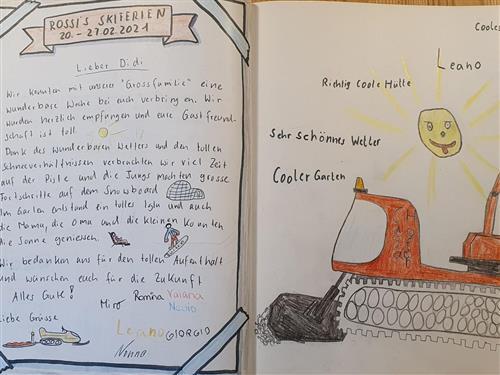 ROSSI'S SKIFERIEN
20. - 27.02.2021
Lieber Didi
Wir konnten mit unserer "Grossfamilie" eine
wunderbare Woche bei euch verbringen. Wir
wurden herzlich empfangen und eure Gastfreund-
schaft ist toll.
Dank des wunderbaren Wetters und den tollen
Schneeverhältnissen verbrachten wir viel Zeit
auf der Piste und die Jungs machten grosse
Fortschritte auf dem Snowboard
Im Garten entstand ein tolles Iglu und auch
die Mama, die Oma und die kleinen konnten
die Sonne geniessen.
Wir bedanken uns für den tollen Aufenthalt
und wünschen euch für die Zukunft
Alles Gute!
Miro Romina Vaiana
Navio
Liebe Grüsse
Leano GIORGIO
Nonna
Cooles
Leano
Richtig Coole Hütte
Sehr schönnes Wetter
Cooler Garten